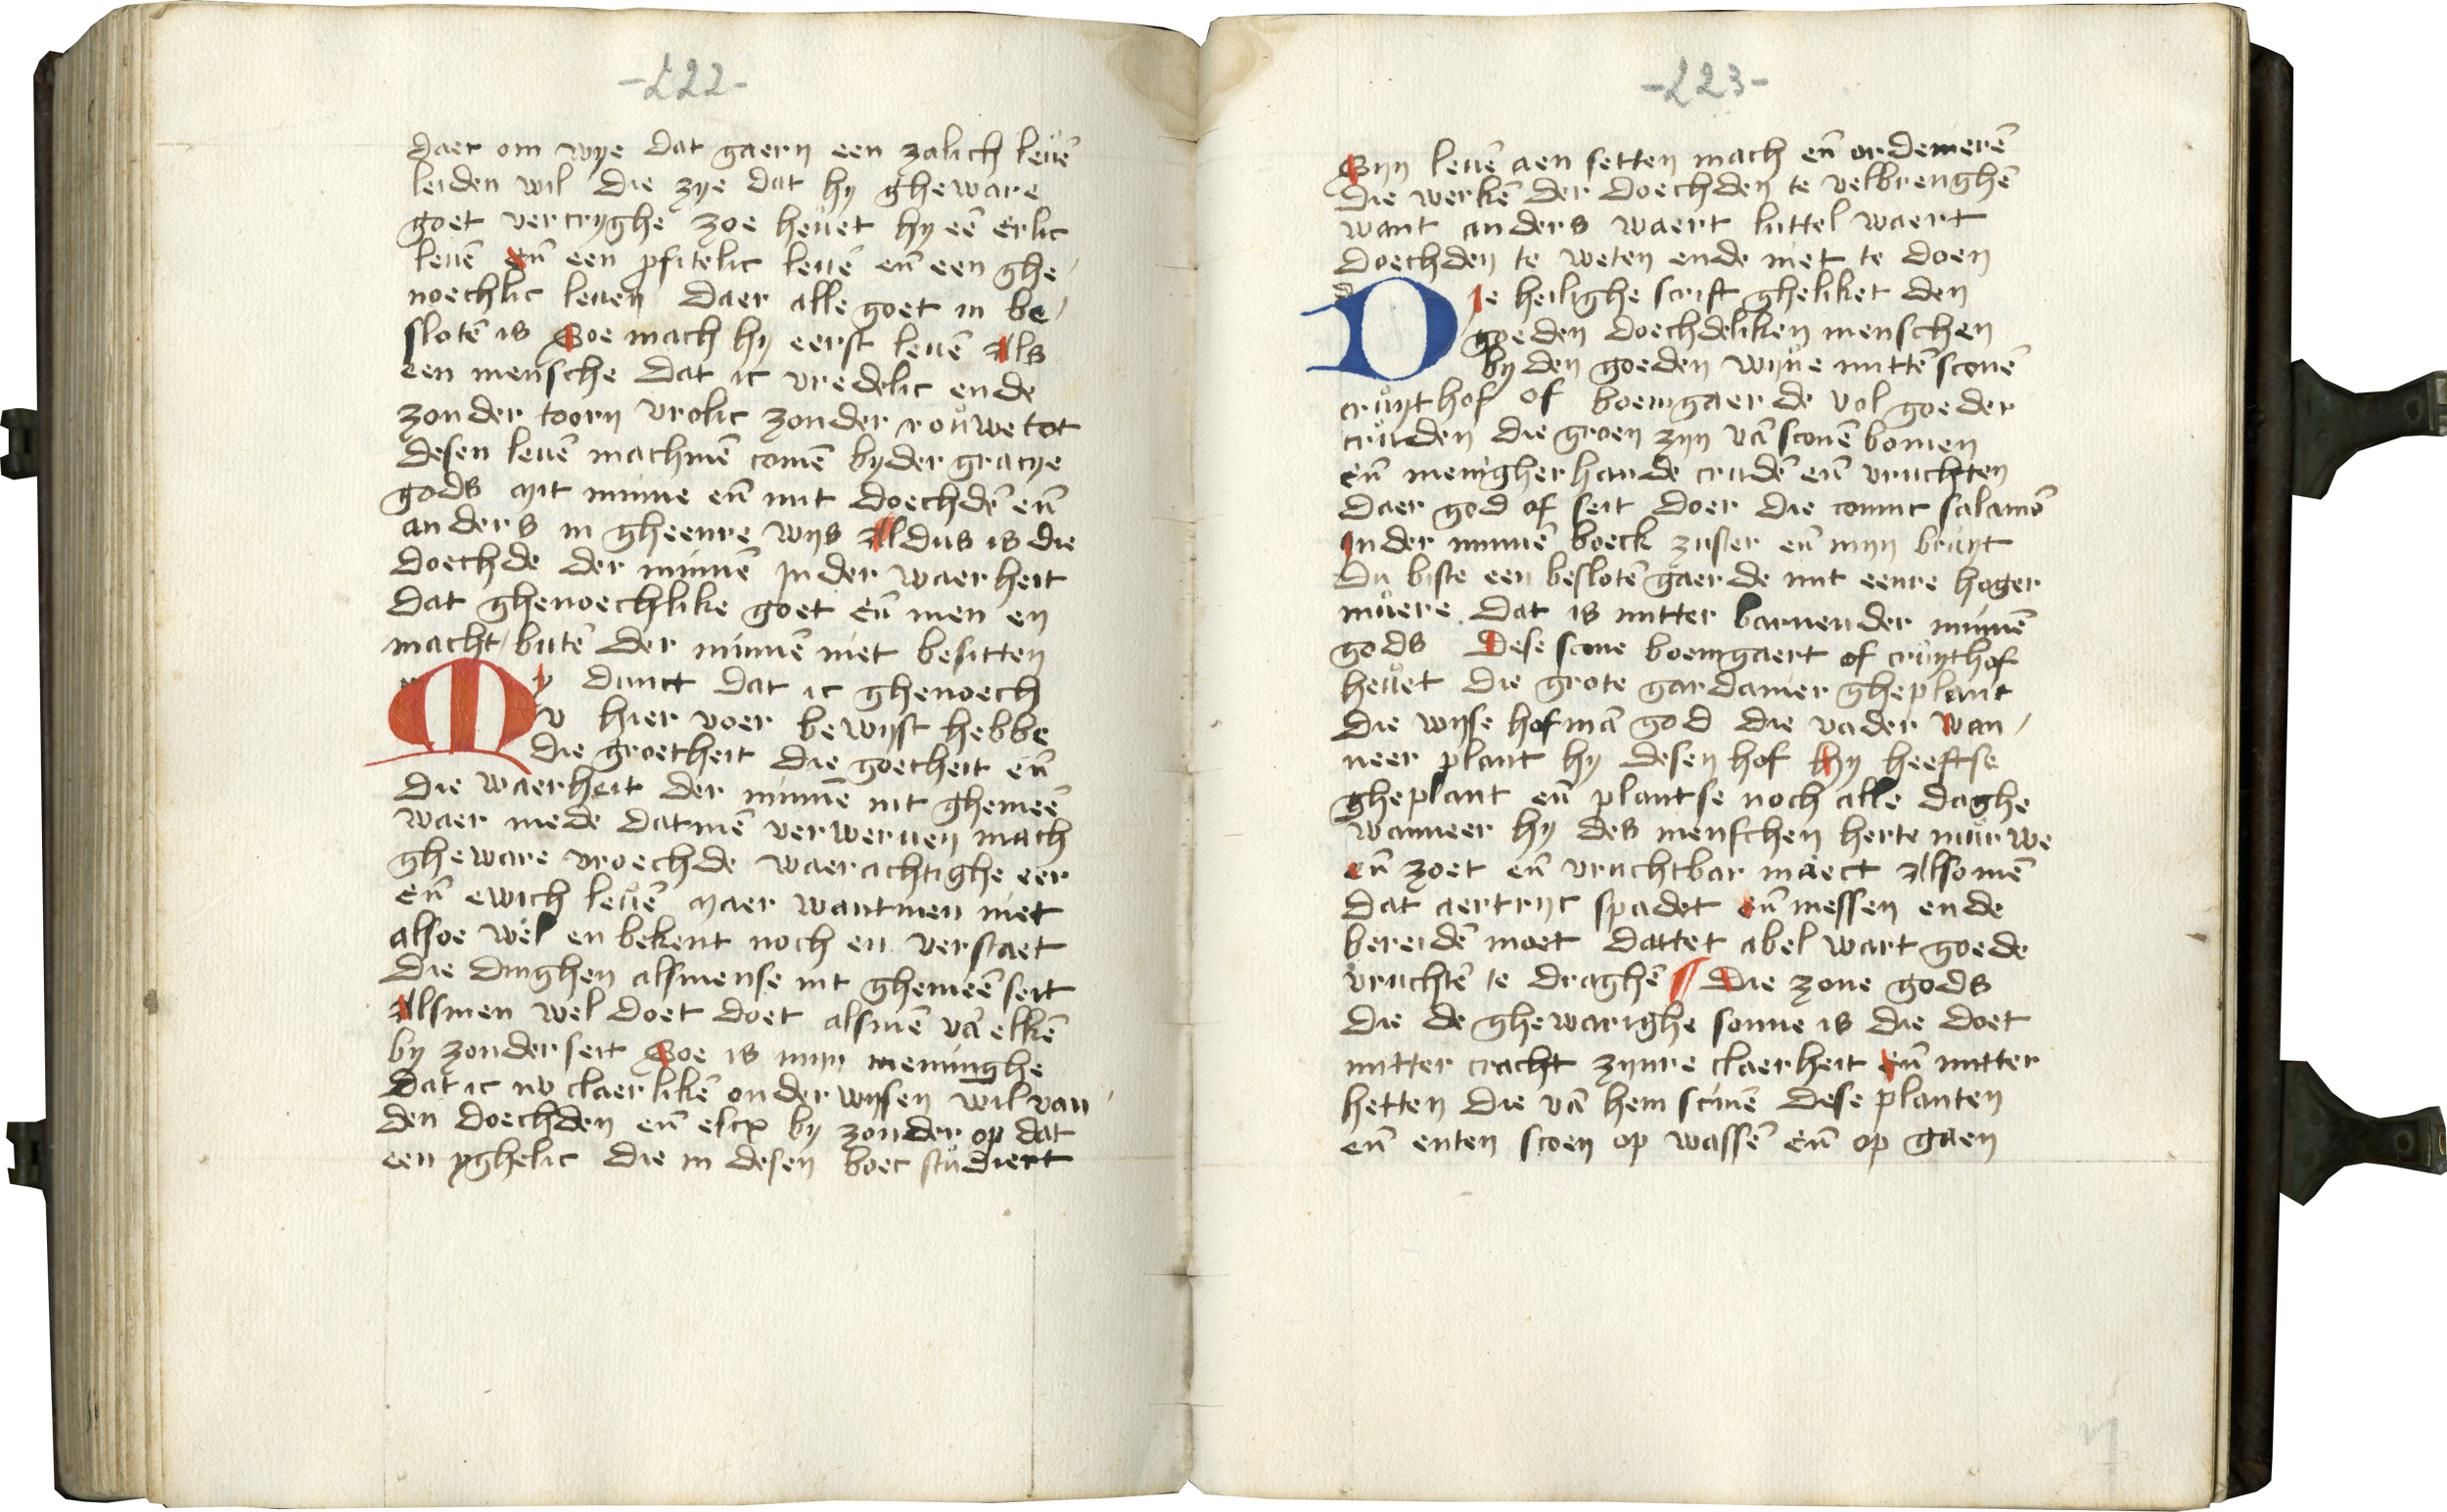 -222-
daer om wye dat gaern een zalich leuē
leiden wil die zye dat hy gheware
goet vercryghe zoe heuet hy eē erlic
leuē eñ een pfitelic leuē eñ een ghe
noechlic leuen daer alle goet in be
slotē is Soe mach hy eerst leuē Als
een mensche dat ic vredelic ende
zonder toorn vrolic zonder rouwe tot
desen leuē machmē comē by der gracye
gods mit minne eñ mit doechdē eñ
anders in gheenre wys Aldus is die
doechde der minnē In der waerheit
dat ghenoechlike goet eñ men en
macht butē der minnē niet besitten
My dunct dat ic ghenoech
v hier voer bewyst hebbe
die groetheit die goetheit eñ
die waerheit der minnē int ghemeē
waer mede datmē verweruen mach
gheware vroechde waerachtighe eer
eñ ewich leuē maer wantmen niet
alsoe wel en bekent noch en verstaet
die dinghen alsmense int ghemeē seit
Alsmen wel doet doet alsmē vā elkē
by zonder seit Soe is myn meninghe
dat ic nv claerlikē onderwysen wil van
den doechden eñ elcx by zonder op dat
een yghelic die in desen boec studiert
-223-
Syn leuē aen setten mach eñ ordenierē
die werkē der doechden te volbrenghē
want anders waert luttel waert
doechden te weten ende niet te doen
Die heilighe scrift gheliket den
goeden doechdeliken menschen
by den goeden wyue mittē sconē
cruythof of boemgaerde vol goeder
cruden die groen zyn vā sconē bomen
eñ menigherhande crudē eñ vruchten
daer god of seit doer die coninc salamō
In der minnē boeck zuster eñ myn bruyt
Du biste een beslotē gaerde mit eenre hoger
muere dat is mitter barnender minnē
gods Dese scone boemgaert of cruythof
heuet die grote gardenier gheplant
die wyse hofmā god die vader Wan
neer plant hy desen hof Hy heeftse
gheplant eñ plantse noch alle daghe
wanneer hy des menschen herte murwe
eñ zoet eñ vruchtbar maect Alsomē
dat aertryc spadet eñ messen ende
bereidē moet dattet abel wart goede
vruchtē te draghē ¶ Die zone gods
die de ghewarighe sonne is die doet
mitter cracht zynre claerheit eñ mitter
hetten die vā hem scinē dese planten
eñ enten scoen op wassē eñ op gaen